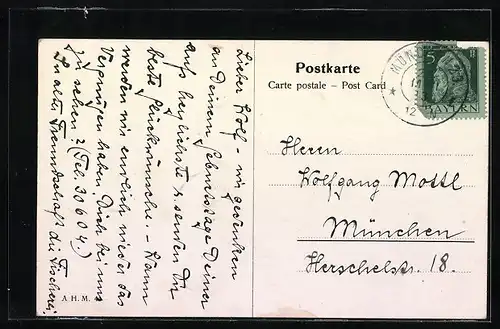 Lieber Wolf - wir gedenken
an Deinem Geburtstage Deiner
aufs herzlichste u. senden Dir
beste Glückwünsche. - Wann
werden wir endlich wieder das
Vergnügen haben, Dich bei uns
zu sehen? (Tel. 30604.)
In alter Freundschaft die Fischerei
A. H. M.
Postkarte
Carte postale – Post Card
MÜN
12
5
BAYERN
Herren
Wolfgang Mottl
München
Herschelstr. 18.